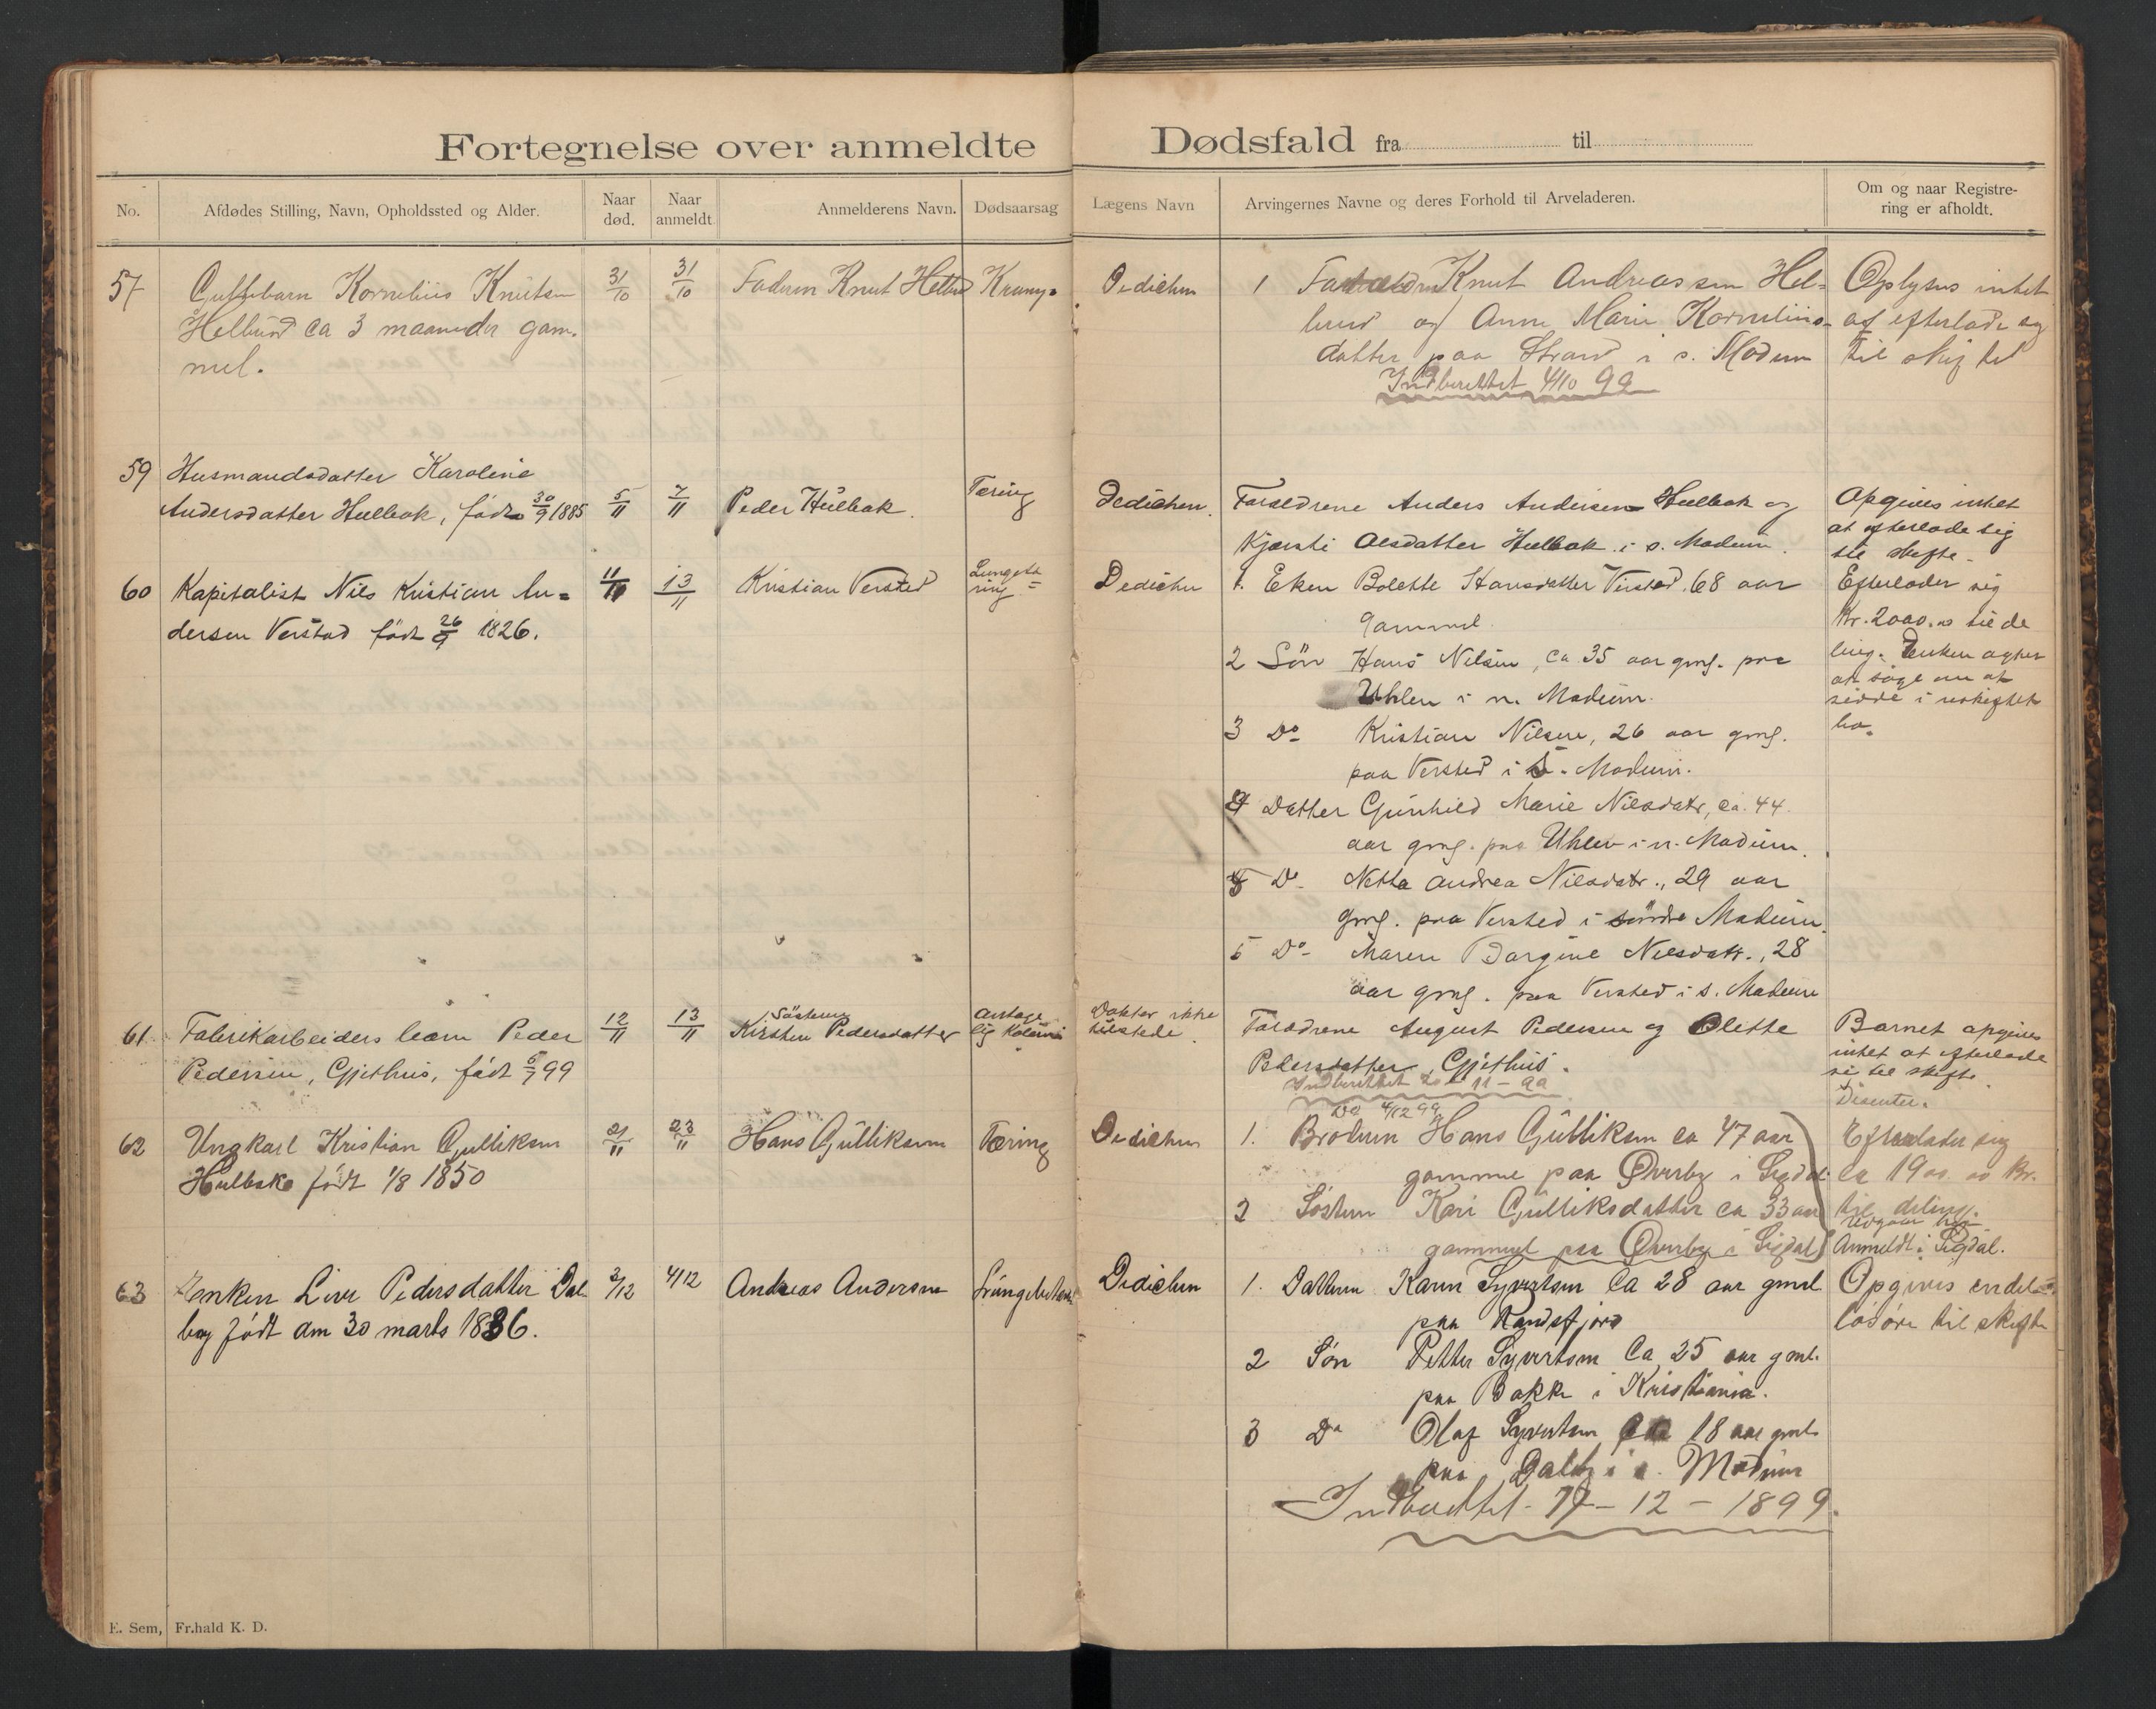 Fortegnelse over anmeldte Dødsfald fra til
No.
Afdødes Stilling, Navn, Opholdssted og Alder.
Naar død.
Naar anmeldt
Anmelderens Navn.
Dødsaarsag
Lægens Navn
Arvingernes Navne og deres Forhold til Arveladeren.
Om og naar Registre-
ring er afholdt.
57
Guttebarn Kornelius Knutsen
Hellerud ca 3 maaneder gam-
mel.
31/10
31/10
Faderen Knut
Dedichen
1 Knut Andreassen Hel=
lerud og Anne Marie Kornelius-
datter paa Strand i s. Modum
Indberettet 4/10 99
Oplyses intet
af efterlade sig
til skiftet
59
Husmandsdatter Karoline
Andersdatter Hulbak, født 30/9 1885
5/11
7/11
Peder Hulbak.
Tæring
Dedichen.
Forældrene Anders Andersen Hulbak og
Kjersti Olsdatter Hulbak i s. Modum.
Opgives intet
at efterlade sig
til skifte.
60
Kapitalist Nils Kristian An=
dersen Verstad født 26/9 1826.
11/11
13/11
Kristian Versted
Lungetæ
ring
Dedichen
1. Eken Bolette Hansdatter Verstad. 68 aar
gammel.
2 Søn Hans Nilsen, ca 35 aar gml. paa
Uhlen i n. Modum.
3 Do Kristian Nilsen, 26 aar gml.
paa Versted i S. Modum.
4 Datter Gunhild Marie Nilsdatr, ca. 44
aar gml. paa Uhlen i n. Modum.
5 Do Netta Andrea Nilsdatr., 29 aar
gml. paa Versted i søndre Modum.
5 Do Maren Bargine Nilsdatr., 28
aar gml. paa Versted i s. Modum
Efterlader sig
Kr. 2000.00 til de
ling. Enken agter
at søge om at
sidde i uskiftet
bo.
61
Fabrikarbeiders barn Peder
Pedersen, Gjethus, født 5/7 99
12/11
13/11
Søsteren
Kirsten Pedersdatter
antage
lig Kolerin
Doktor ikke
tilstede.
Forældrene August Pedersen og Olette
Pedersdatter, Gjethus.
Indberettet 20-11-99
Do 4/12 99
Barnet opgives
intet at efterlade
sig til skifte.
Disenter.
62
Ungkarl Kristian Gulliksen
Hulbak født 1/8 1850
21/11
23/11
Hans Gulliksen
Tæring
Dedichen
1. Broderen Hans Gulliksen ca 47 aar
gammel paa Øverby i Sigdal
2 Søsteren Kari Gulliksdatter ca 33 aar
gammel paa Øverby i Sigdal
Efterlader sig
ca 1900.00 Kr.
til deling.
Anmeldt i Sigdal.
63
Enken Live Pedersdatter Dal
by født den 30 marts 1836.
2/12
4/12
Andreas Andersen
Dedichen
1. Datteren Karen Syvertsen ca 28 aar gmel
paa Randsfjord
2 Søn Petter Syvertsen ca 25 aar gml.
paa Bakke i Kristiania.
3 Do Olaf Syvertsen ca 18 aar gml.
paa Dalby i s. Modum
Indberettet 17-12-1899.
Opgives endel
løsøre til skifte
E. Sem, Fr.hald K. D.